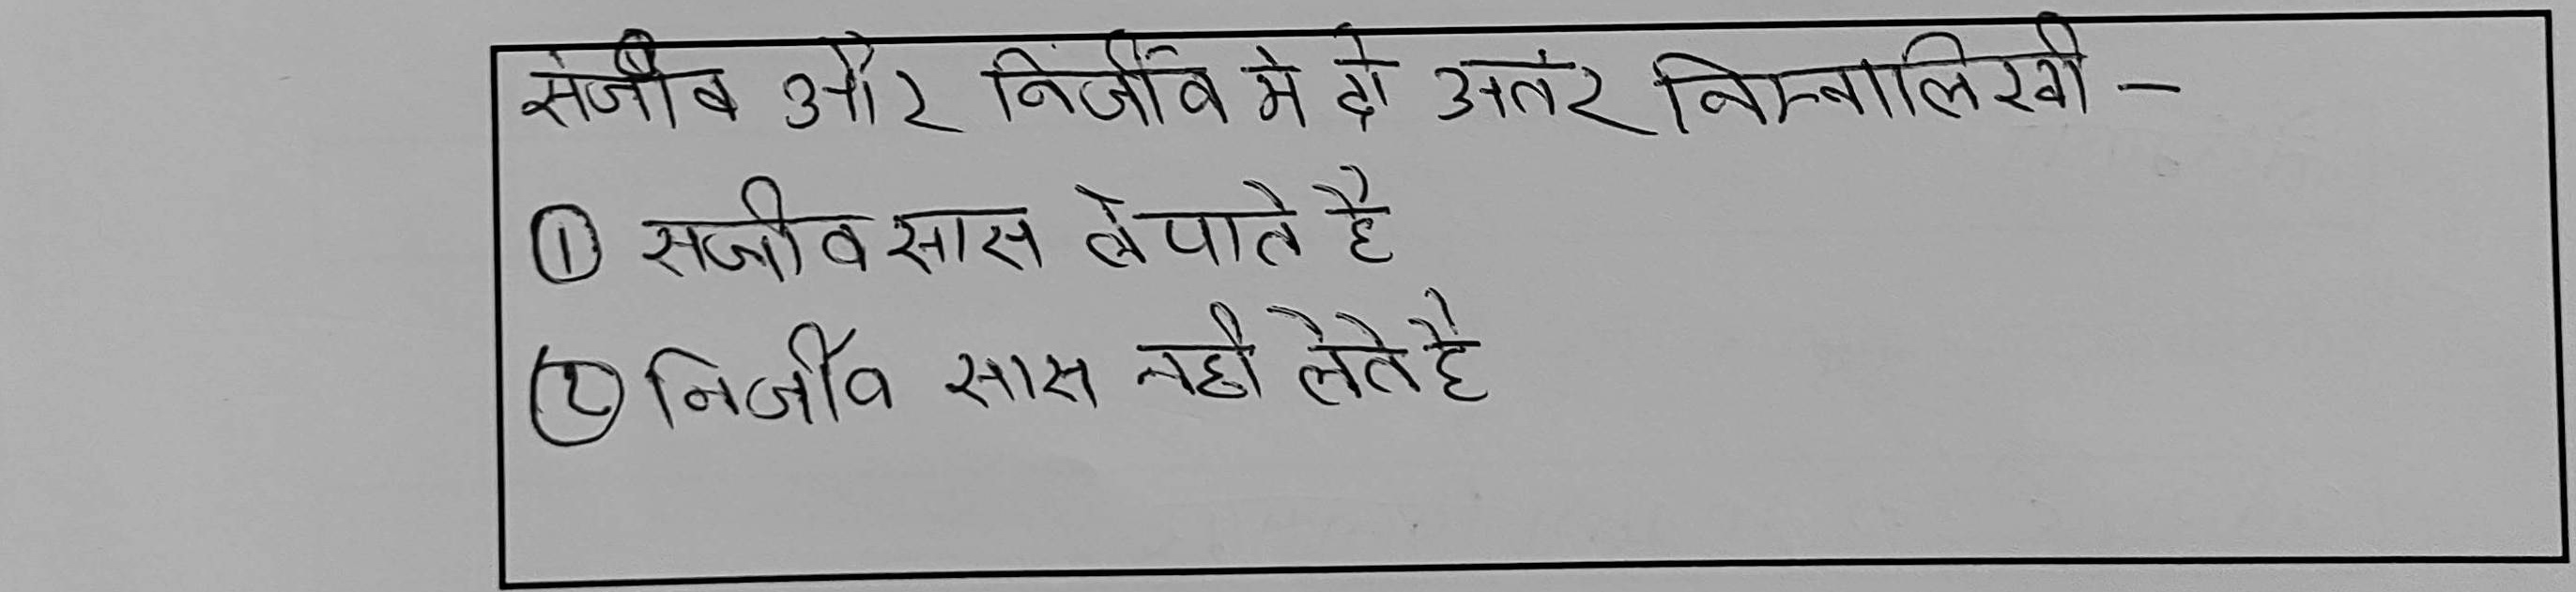 संजीव और निर्जीव मे दो अतंर निम्नालिखी -
① सजीव सास ले पाते है
② निर्जीव सास नही लेते है